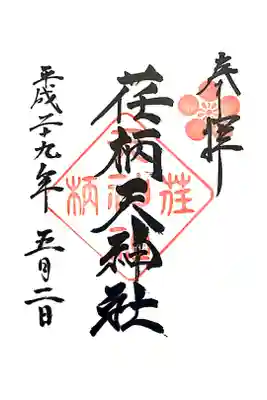 奉拝
荏柄天神社
平成二十九年五月二日